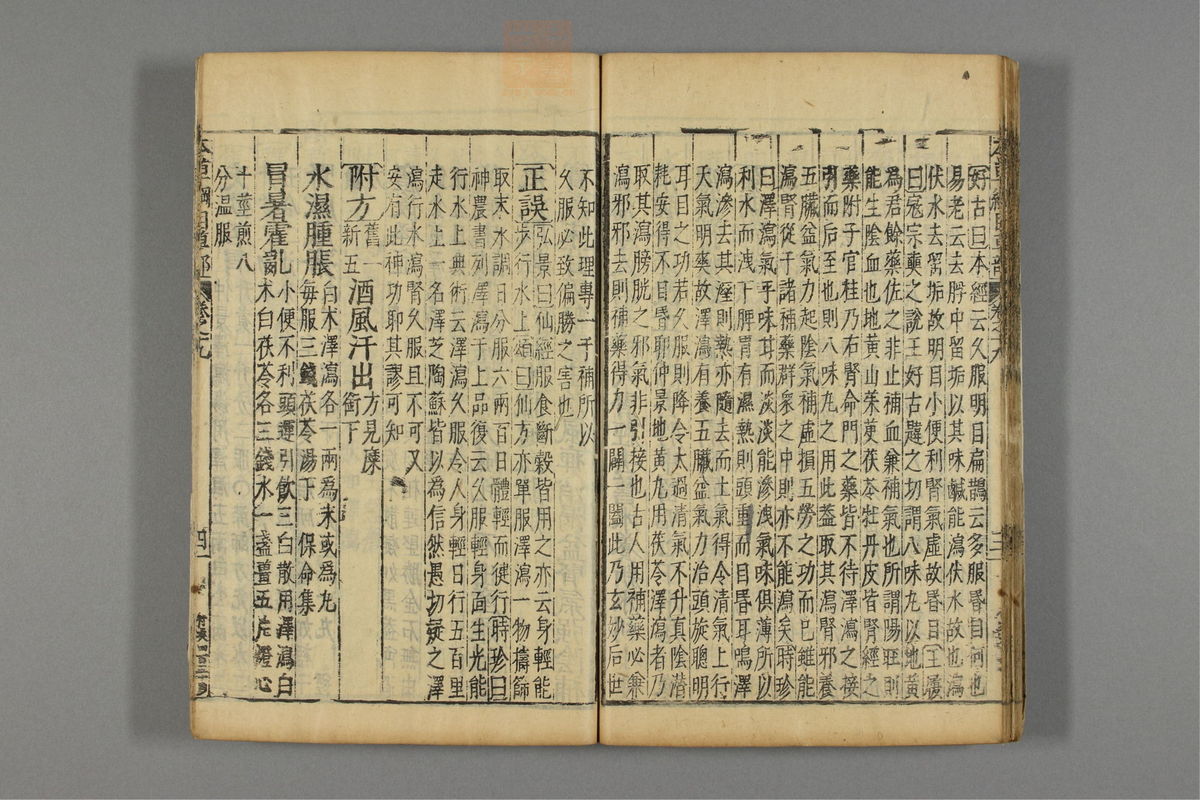 好古曰本經云久服明目扁鵲云多服昏目何也
易老云去脬中留垢以其味鹹能瀉伏水故也瀉
伏水去留垢故明目小便利腎氣虛故昏目王履
曰寇宗奭之說王好古韙之切謂八味丸以地黃
為君餘藥佐之非止補血兼補氣也所謂陽旺則
能生陰血也地黃山茱萸茯苓牡丹皮皆腎經之
藥附子官桂乃右腎命門之藥皆不待澤瀉之接
引而后至也則八味丸之用此葢取其瀉腎邪養
五臟益氣力起陰氣補虛損五勞之功而已雖能
瀉腎從于諸補藥群衆之中則亦不能瀉矣時珍
曰澤瀉氣平味甘而淡淡能滲泄氣味俱薄所以
利水而洩下脾胃有濕熱則頭重而目昏耳鳴澤
瀉滲去其溼則熱亦隨去而土氣得令清氣上行
天氣明爽故澤瀉有養五臟益氣力治頭旋聰明
耳目之功若久服則降令太過清氣不升真陰潛
耗安得不目昏耶仲景地黃丸用茯苓澤瀉者乃
取其瀉膀胱之邪氣非引接也古人用補藥必兼
瀉邪邪去則補藥得力一闢一闔此乃玄妙后世
不知此理專一于補所以
久服必致偏勝之害也
正誤弘景曰仙經服食斷穀皆用之亦云身輕能
步行水上頌曰仙方亦單服澤瀉一物擣篩
取末水調日分服六兩百日體輕而徤行時珍曰
神農書列澤瀉于上品復云久服輕身面生光能
行水上典術云澤瀉久服令人身輕日行五百里
走水上一名澤芝陶蘇皆以為信然愚切疑之澤
瀉行水瀉腎久服且不可又
安有此神功耶其謬可知
附方舊一新五酒風汗出方見麋銜下
水濕腫脹白朮澤瀉各一兩為末或為丸
每服三錢茯苓湯下保命集
冒暑霍亂小便不利頭運引飲三白散用澤瀉白
朮白茯苓各三錢水一盞薑五片燈心
十莖煎八
分溫服